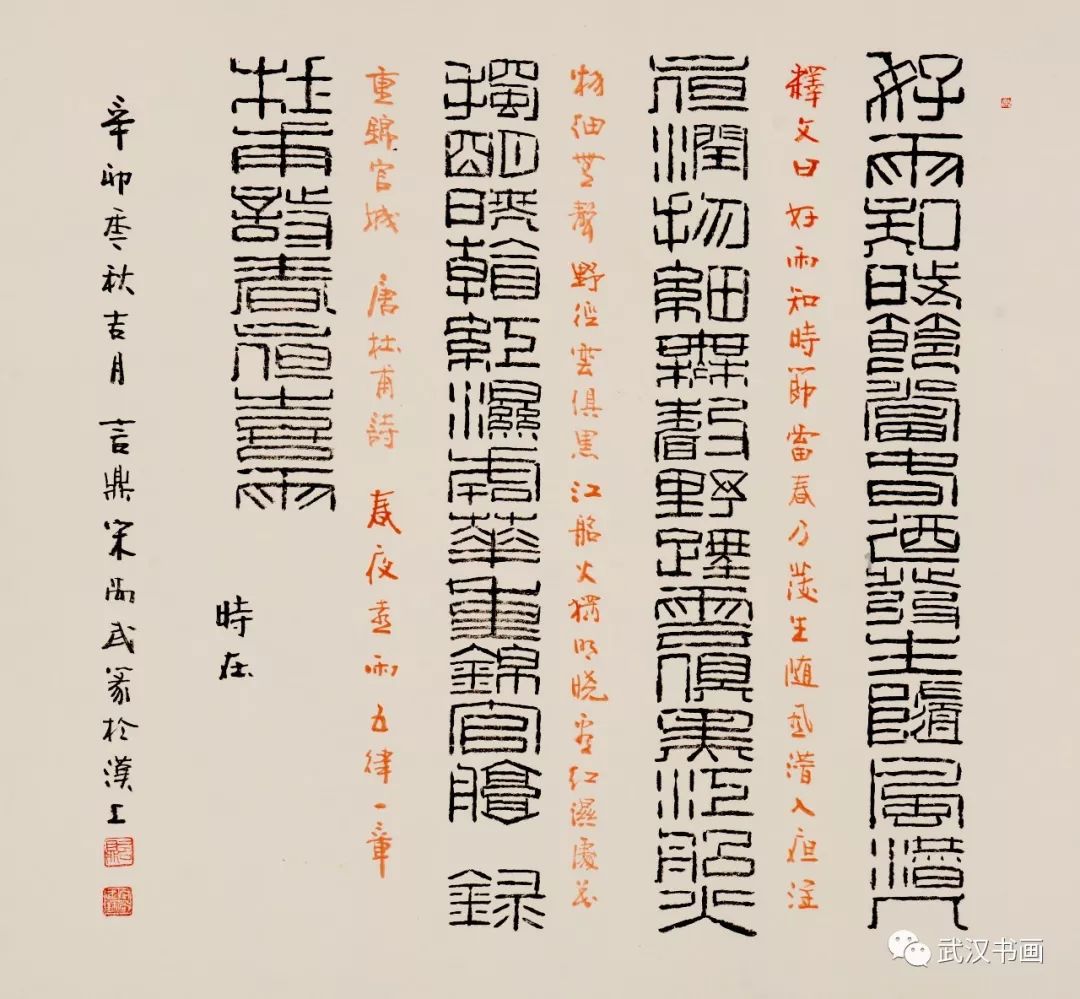 好雨知時節當春迺發生隨風潛入
釋文曰好雨知時節當春乃發生随風潛入夜潤
夜潤物細無聲野徑雲俱黑江船火
物細無聲野徑雲俱黑江船火獨明曉看紅濕處花
獨明曉看紅濕處華重錦官城 録
重錦官城 唐杜甫詩 春夜喜雨五律一章
杜甫詩春夜喜雨
時在
辛卯季秋吉月言鼎宋武篆於漢上
武汉书画